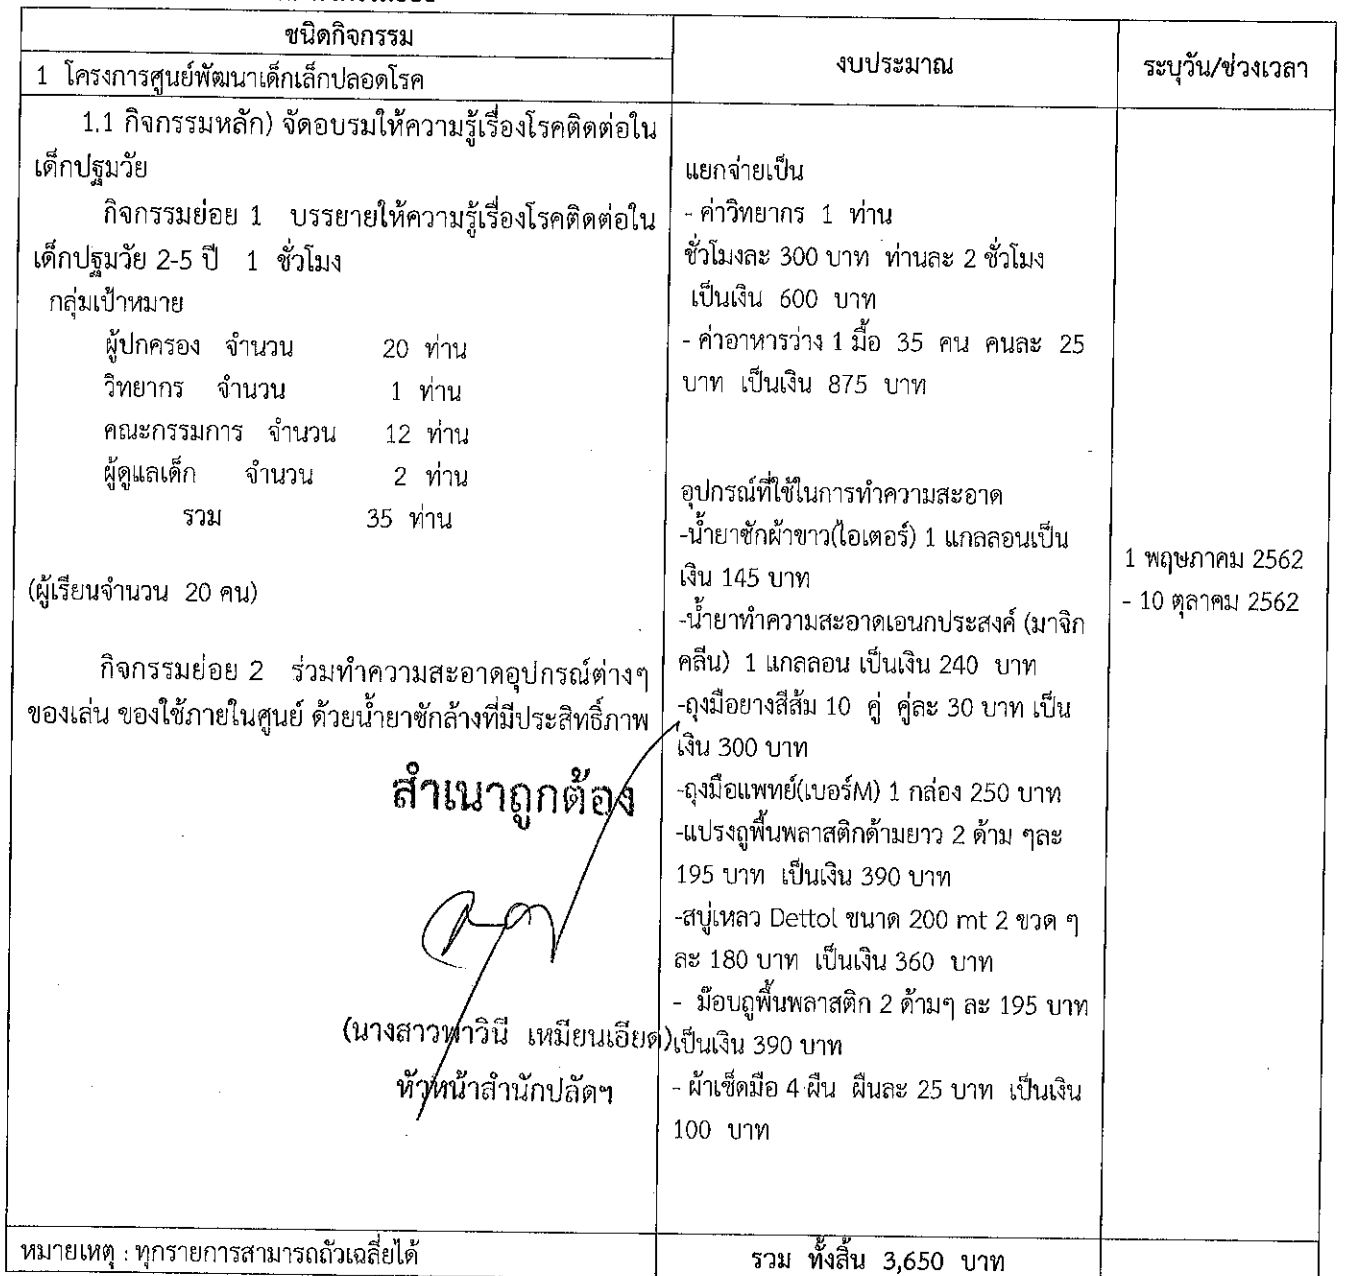 ชนิดกิจกรรม
งบประมาณ
ระบุวัน/ช่วงเวลา
1 โครงการศูนย์พัฒนาเด็กเล็กปลอดโรค
1.1 กิจกรรมหลัก) จัดอบรมให้ความรู้เรื่องโรคติดต่อใน
เด็กปฐมวัย
กิจกรรมย่อย 1 บรรยายให้ความรู้เรื่องโรคติดต่อใน
เด็กปฐมวัย 2-5 ปี 1 ชั่วโมง
กลุ่มเป้าหมาย
ผู้ปกครอง จำนวน 20 ท่าน
วิทยากร จำนวน 1 ท่าน
คณะกรรมการ จำนวน 12 ท่าน
ผู้ดูแลเด็ก จำนวน 2 ท่าน
รวม 35 ท่าน
(ผู้เรียนจำนวน 20 คน)
กิจกรรมย่อย 2 ร่วมทำความสะอาดอุปกรณ์ต่างๆ
ของเล่น ของใช้ภายในศูนย์ ด้วยน้ำยาซักล้างที่มีประสิทธิ์ภาพ
สำเนาถูกต้อง
(นางสาวพาวินี เหมียนเอียด)
หัวหน้าสำนักปลัดฯ
แยกจ่ายเป็น
- ค่าวิทยากร 1 ท่าน
ชั่วโมงละ 300 บาท ท่านละ 2 ชั่วโมง
เป็นเงิน 600 บาท
- ค่าอาหารว่าง 1 มื้อ 35 คน คนละ 25
บาท เป็นเงิน 875 บาท
อุปกรณ์ที่ใช้ในการทำความสะอาด
-น้ำยาซักผ้าขาว(ไอเตอร์) 1 แกลลอนเป็น
เงิน 145 บาท
-น้ำยาทำความสะอาดเอนกประสงค์ (มาจิก
คลีน) 1 แกลลอน เป็นเงิน 240 บาท
-ถุงมือยางสีส้ม 10 คู่ คู่ละ 30 บาท เป็น
เงิน 300 บาท
-ถุงมือแพทย์(เบอร์M) 1 กล่อง 250 บาท
-แปรงถูพื้นพลาสติกด้ามยาว 2 ด้าม ๆละ
195 บาท เป็นเงิน 390 บาท
-สบู่เหลว Dettol ขนาด 200 mt 2 ขวด ๆ
ละ 180 บาท เป็นเงิน 360 บาท
- ม๊อบถูพื้นพลาสติก 2 ด้ามๆ ละ 195 บาท
เป็นเงิน 390 บาท
- ผ้าเช็ดมือ 4 ผืน ผืนละ 25 บาท เป็นเงิน
100 บาท
1 พฤษภาคม 2562
- 10 ตุลาคม 2562
หมายเหตุ : ทุกรายการสามารถถัวเฉลี่ยได้
รวม ทั้งสิ้น 3,650 บาท